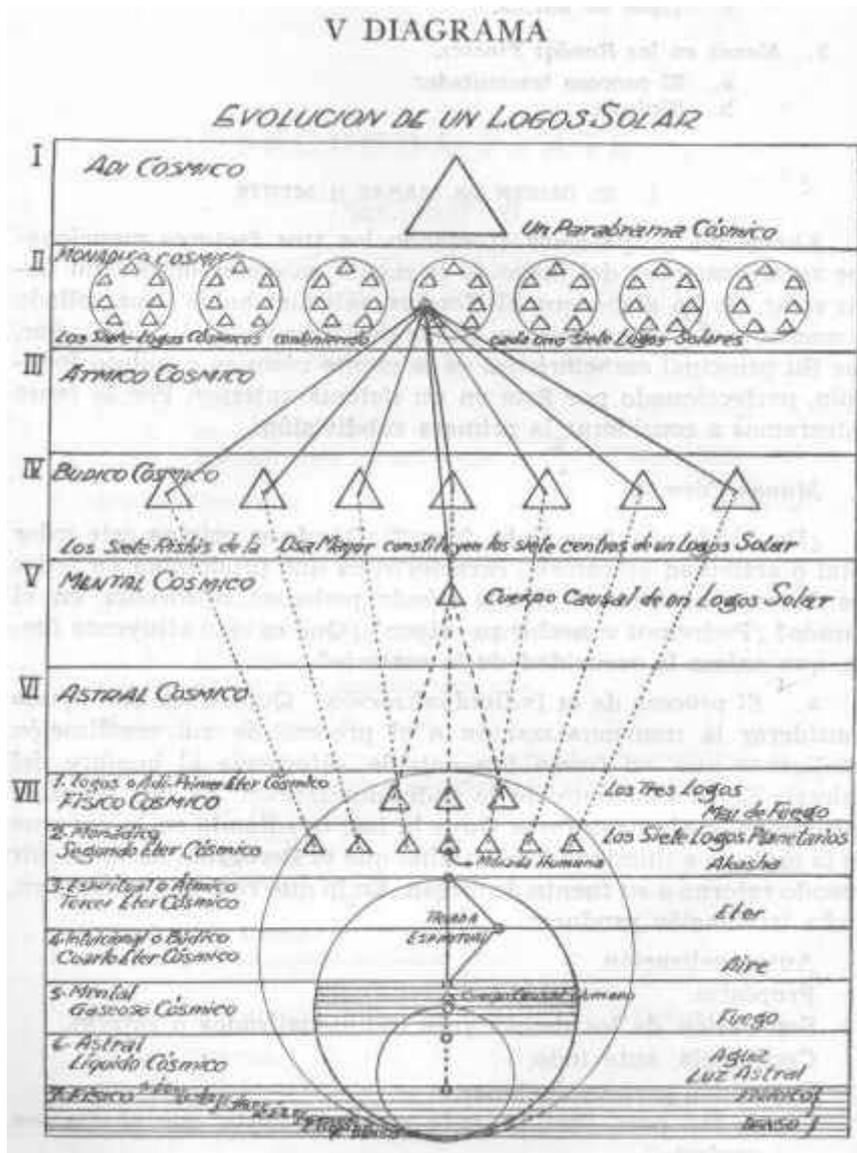 V DIAGRAMA
EVOLUCION DE UN LOGOS SOLAR
I
ADI COSMICO
Un Parabrama Cósmico
II
MONADICO COSMICO
Los Siete Logos Cósmicos conteniendo cada uno Siete Logos Solares
III
ÁTMICO COSMICO
IV
BUDICO CÓSMICO
Los Siete Rishis de la Osa Mayor constituyen los siete centros de un Logos Solar
V
MENTAL COSMICO
Cuerpo Causal de un Logos Solar
VI
ASTRAL COSMICO
VII
1. Logos o Adi. Primer Eter Cósmico
FISICO COSMICO
Los Tres Logos
Mar de Fuego
2. Monádico
Segundo Eter Cósmico
Los Siete Logos Planetarios
Mónada Humana
Akasha
3. Espiritual o Átmico
Tercer Eter Cósmico
Eter
TRIADA
ESPIRITUAL
4. Intuicional o Búdico
Cuarto Eter Cósmico
Aire
5. Mental
Gaseoso Cósmico
Cuerpo Causal Humano
Fuego
6. Astral
Líquido Cósmico
Agua
Luz Astral
7. Físico
ETERICO
DENSO